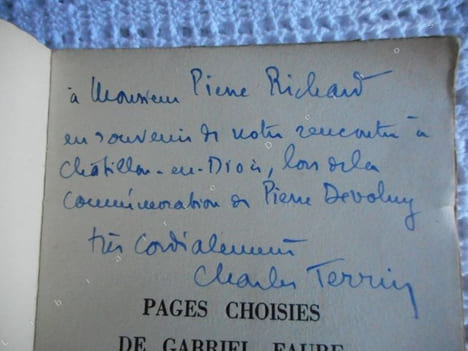 à Monsieur Pierre Richard
en souvenir de notre rencontre à
Châtillon-en-Diois, lors de la
commémoration de Pierre Devoluy
très cordialement
Charles Terrin
PAGES CHOISIES
DE GABRIEL FAURE